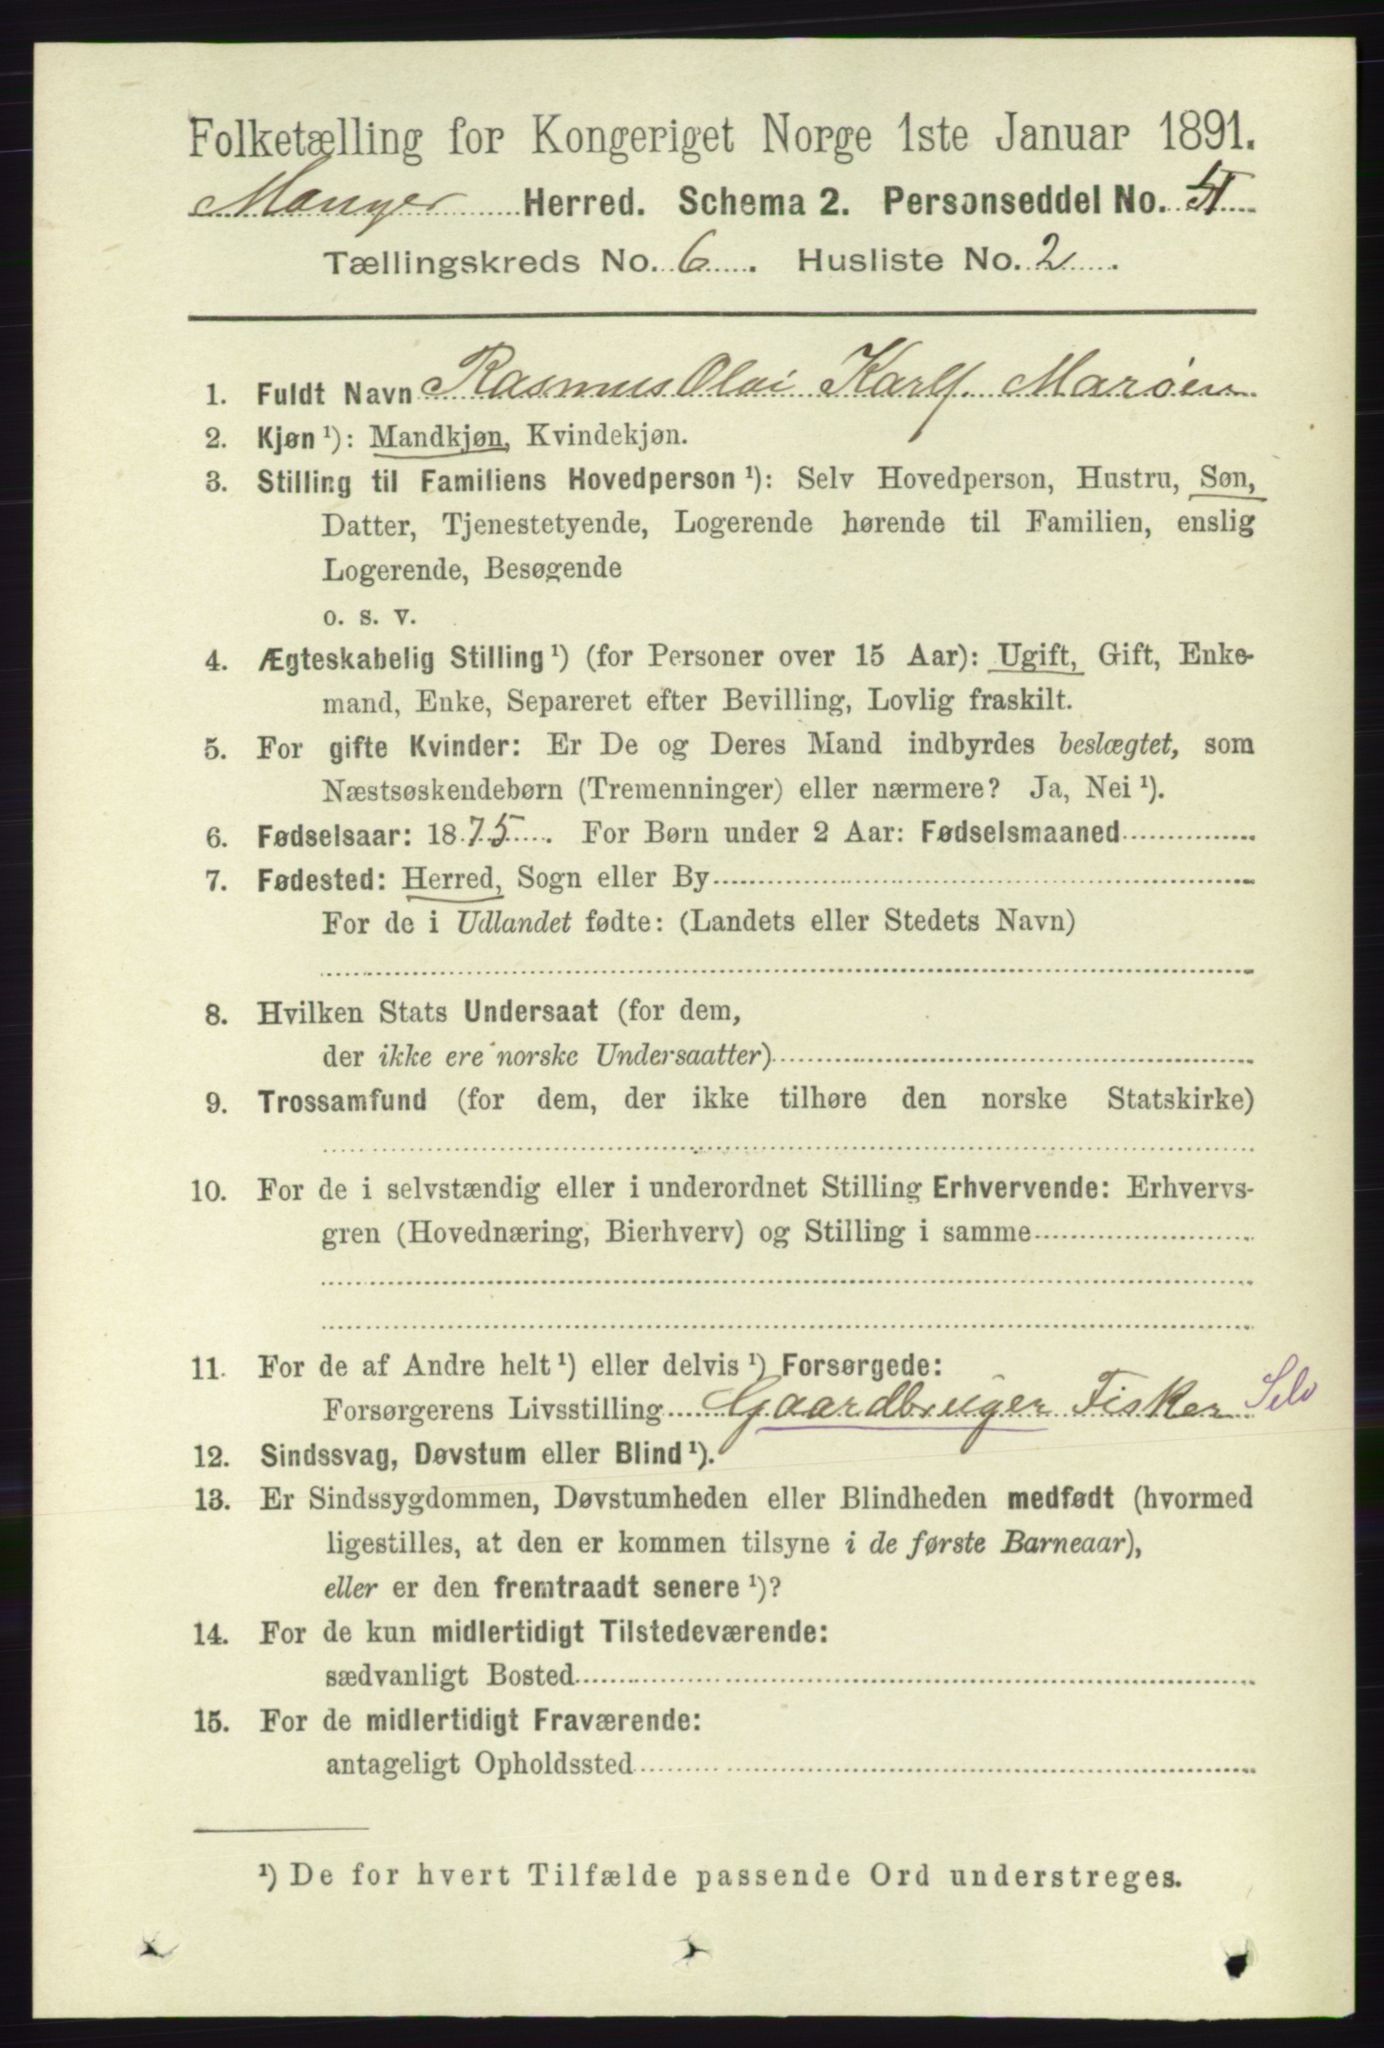 Folketælling for Kongeriget Norge 1ste Januar 1891.
Manger Herred. Schema 2. Personseddel No.
Tællingskreds No. 6. Husliste No. 2.
1. Fuldt Navn Rasmus Olai Karlf. Marøen
2. Kjøn ¹): Mandkjøn, Kvindekjøn.
3. Stilling til Familiens Hovedperson ¹): Selv Hovedperson, Hustru, Søn,
Datter, Tjenestetyende, Logerende hørende til Familien, enslig
Logerende, Besøgende
o. s. v.
4. Ægteskabelig Stilling ¹) (for Personer over 15 Aar): Ugift, Gift, Enke-
mand, Enke, Separeret efter Bevilling, Lovlig fraskilt.
5. For gifte Kvinder: Er De og Deres Mand indbyrdes beslægtet, som
Næstsøskendebørn (Tremenninger) eller nærmere? Ja, Nei ¹).
6. Fødselsaar: 1875. For Børn under 2 Aar: Fødselsmaaned
7. Fødested: Herred, Sogn eller By
For de i Udlandet fødte: (Landets eller Stedets Navn)
8. Hvilken Stats Undersaat (for dem,
der ikke ere norske Undersaatter)
9. Trossamfund (for dem, der ikke tilhøre den norske Statskirke)
10. For de i selvstændig eller i underordnet Stilling Erhvervende: Erhvervs-
gren (Hovednæring, Bierhverv) og Stilling i samme
11. For de af Andre helt ¹) eller delvis ¹) Forsørgede:
Forsørgerens Livsstilling Gaardbruger Fisker Selv
12. Sindssvag, Døvstum eller Blind ¹).
13. Er Sindssygdommen, Døvstumheden eller Blindheden medfødt (hvormed
ligestilles, at den er kommen tilsyne i de første Barneaar),
eller er den fremtraadt senere ¹)?
14. For de kun midlertidigt Tilstedeværende:
sædvanligt Bosted
15. For de midlertidigt Fraværende:
antageligt Opholdssted
¹) De for hvert Tilfælde passende Ord understreges.